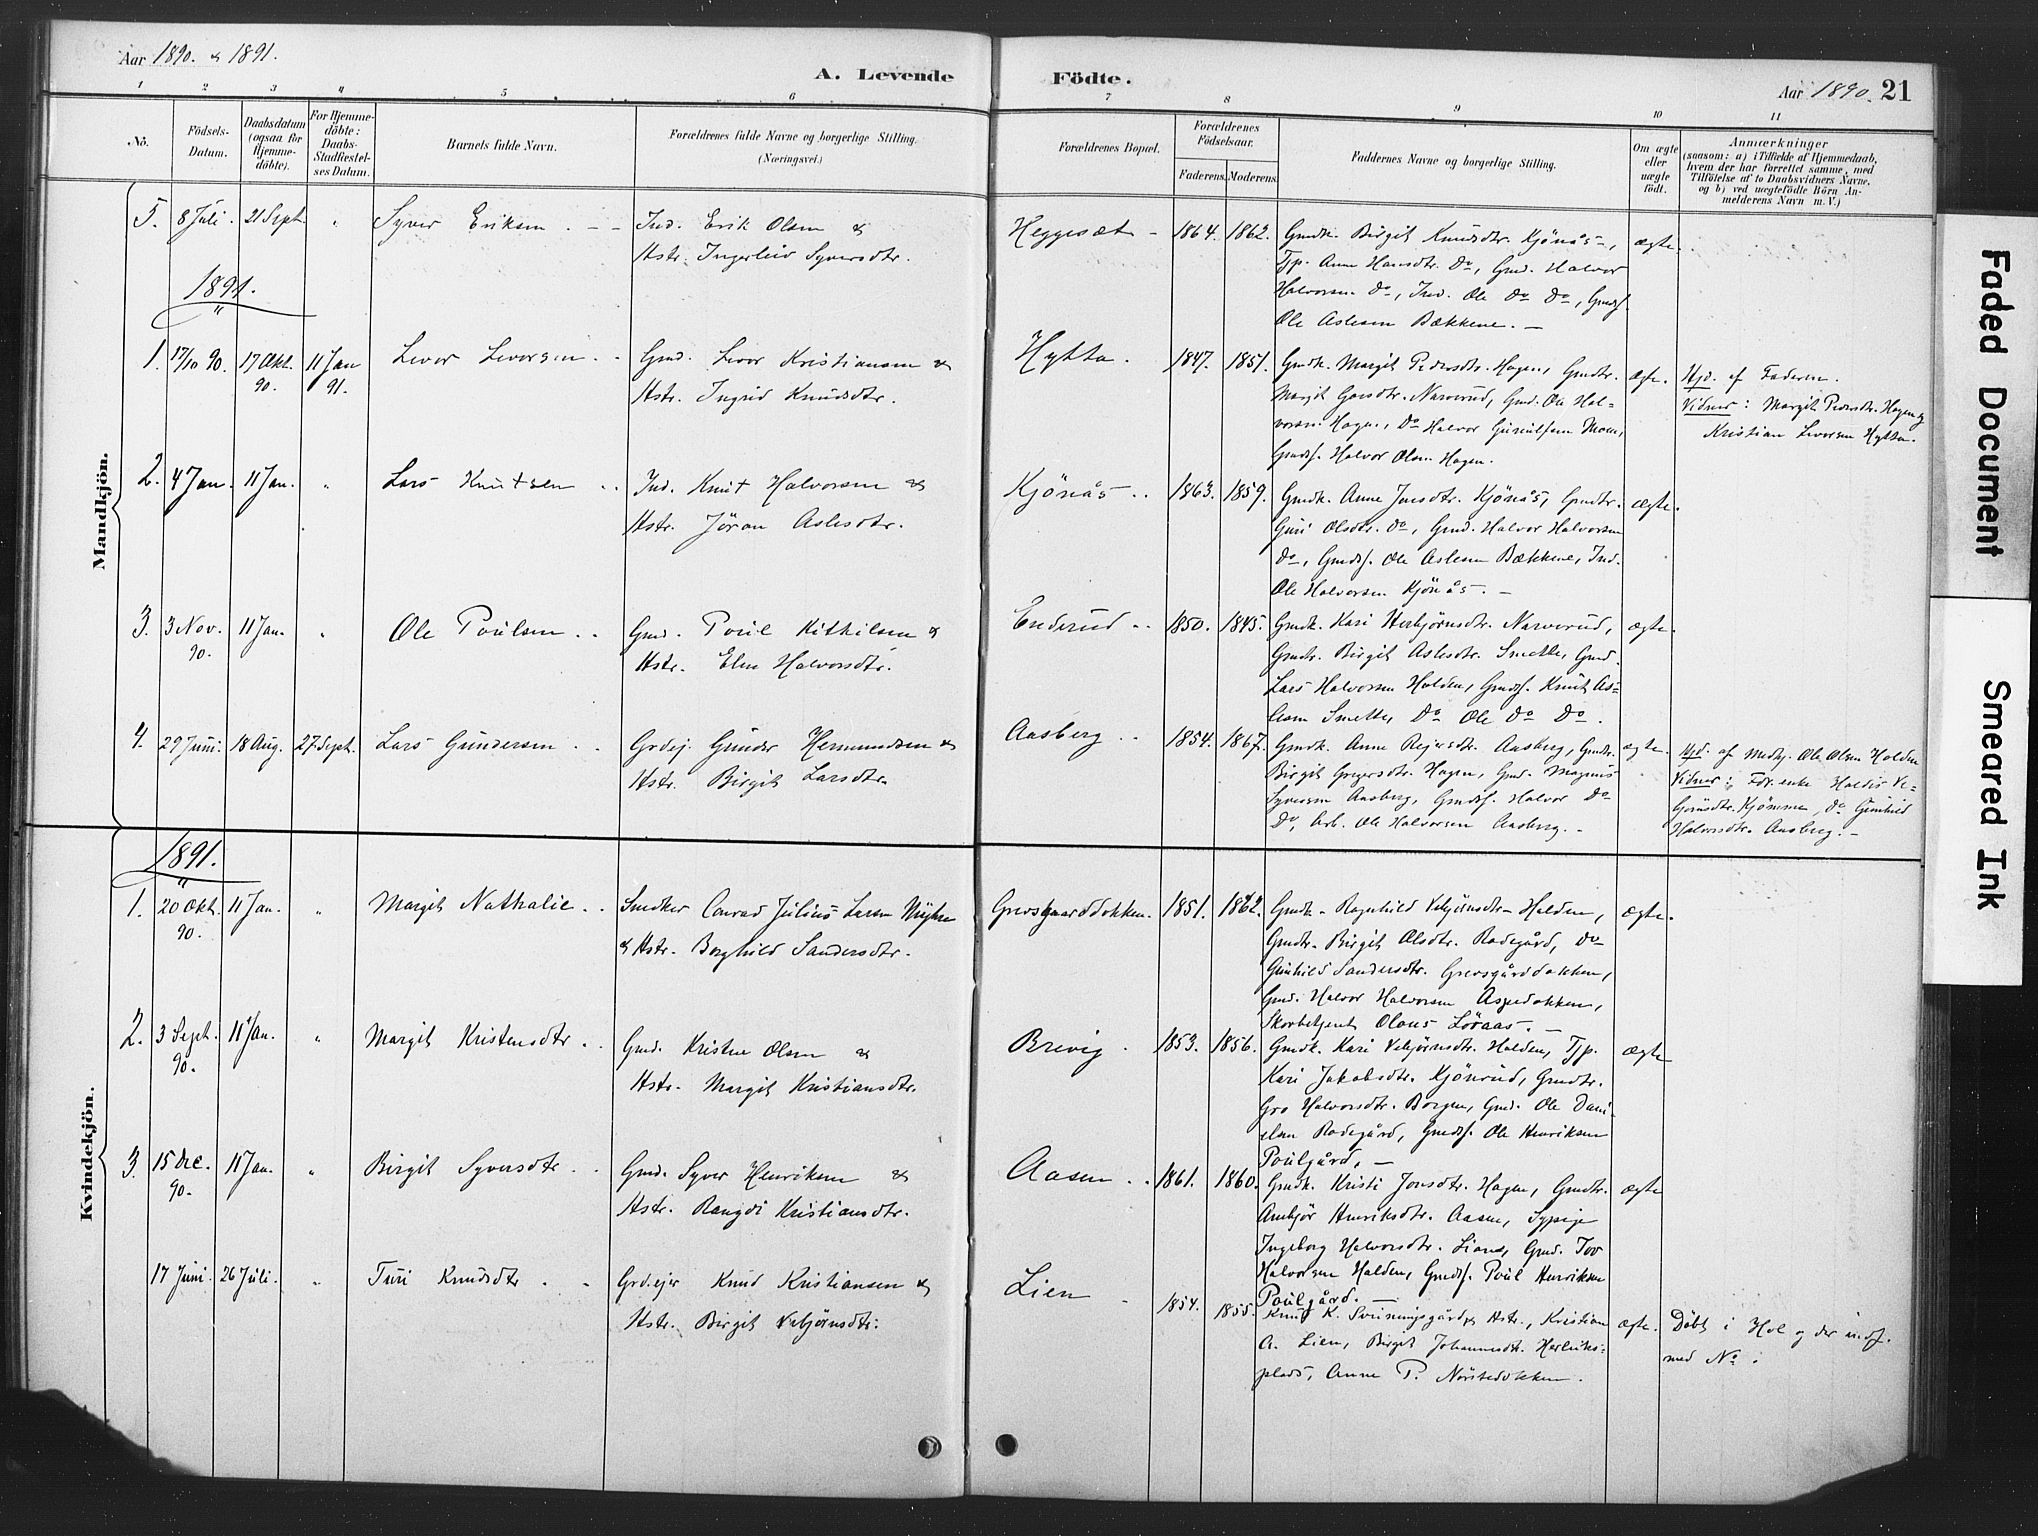 Aar 1890. & 1891.
A. Levende
Födte.
Aar 1890. 21
1 2 3 4 5 6 7 8 9 10 11
No.
Födsels-
Datum.
Daabsdatum
(ogsaa for
Hjemme-
döbte).
For Hjemme-
döbte:
Daabs-
Stadfæstel-
ses Datum.
Barnets fulde Navn.
Forældrenes fulde Navne og borgerlige Stilling.
(Næringsvei.)
Forældrenes Bopæl.
Forældrenes
Födselsaar.
Faderens.
Moderens.
Faddernes Navne og borgerlige Stilling.
Om ægte
eller
uægte
födt.
Anmærkninger
(saasom: a) i Tilfælde af Hjemmedaab,
hvem der har forrettet samme, med
Tilföielse af to Daabsvidners Navne,
og b) ved uægtefödte Börn An-
melderens Navn m. V.)
Mandkjön.
5. 8 Juli. 21 Sept. " Syver Eriksen. - -
Ind. Erik Olsen &
Hstr. Ingerleiv Syversdtr.
Heggesæt - 1864. 1862.
Gmdk. Birgit Knudsdtr. Kjönås-,
Tjp. Anne Hansdtr. Do, Gmd. Halvor
Halvorsen Do, Ind. Ole Do Do, Gmdsf.
Ole Aslesen Bækkene. -
ægte.
1891.
1. 17/10 90. 17 Okt. 90. 11 Jan 91. Levor Levorsen. .
Gmd. Levor Kristiansen &
Hstr. Ingrid Knudsdtr.
Hytta. 1847. 1851.
Gmdk. Margit Pedersdtr. Hagen, Gmdtr.
Margit Goesdtr. Narverud, Gmd. Ole Hal-
vorsen Hagen, Do Halvor Gunulfsen Moen,
Gmdsf. Halvor Olsen Hagen.
ægte.
Hjd. af Faderen.
Vidner: Margit Pedersdtr. Hagen og
Kristian Levorsen Hytta.
2. 4 Jan. 11 Jan. " Lars Knutsen . .
Ind. Knut Halvorsen &
Hstr. Jöran Aslesdtr.
Kjönås . . 1863. 1859.
Gmdk. Anne Jonsdtr. Kjönås, Gmdtr.
Guri Olsdtr. Do, Gmd. Halvor Halvorsen
Do, Gmdsf. Ole Aslesen Bækkene, Ind.
Ole Halvorsen Kjönås. -
ægte.
3. 3 Nov. 90. 11 Jan. " Ole Poulsen . .
Gmd. Poul Kithilsen &
Hstr. Elen Halvorsdtr.
Enderud . . 1850. 1845.
Gmdk. Kari Herbjörnsdtr. Narverud,
Gmdtr. Birgit Aslesdtr. Smette, Gmd.
Lars Halvorsen Holden, Gmdsf. Knut As-
lesen Smette, Do Ole Do Do.
ægte.
4. 29 Juni. 18 Aug. 27. Sept. Lars Gundersen . .
Grdej. Gunder Hermundsen &
Hstr. Birgit Larsdtr.
Aasberg . . 1854. 1867.
Gmdk. Anne Rejersdtr. Aasberg, Gmdtr.
Birgit Gregersdtr. Hagen, Gmd. Magnus
Syversen Aasberg, Gmdsf. Halvor Do
Do, Arb. Ole Halvorsen Aasberg. -
ægte.
Hjd. af Medhj. Ole Olsen Holden
Vidner: Fdr. enke Haldis Ve-
Kjömme, Do Gunhild
Halvorsdtr. Aasberg. -
Kvindekjön.
1891.
1. 20 Okt. 90. 11 Jan. " Margit Nathalie . .
Snedker Conrad Julius Larsen
& Hstr. Borghild Sandersdtr.
Grevsgaarddokken. 1851. 1862.
Gmdk. Ragnhild Vebjörnsdtr. Holden,
Gmdtr. Birgit Olsdtr. Rodegård, Do
Gunhild Sandersdtr. Grevsgårddokken,
Gmd. Halvor Halvorsen Aspedokken,
Skovbetjent Olaus Löraas. -
ægte.
2. 3 Sept. 90. 11 Jan. " Margit Kristensdtr. .
Gmd. Kristen Olsen &
Hstr. Margit Kristiansdtr.
Brevig. 1853. 1856.
Gmdk. Kari Vebjörnsdtr. Holden, Tjp.
Kari Jakobsdtr. Kjönrud, Gmdtr.
Gro Halvorsdtr. Borgen, Gmd. Ole Dani-
elsen Rodegård, Gmdsf. Ole Henriksen
Poulgård, -
ægte
3. 15 Dec. 90. 11 Jan. " Birgit Syversdtr. . .
Gmd. Syver Henriksen &
Hstr. Rangdi Kristiansdtr.
Aasen . . 1861. 1860.
Gmdk. Kristi Jonsdtr. Hagen, Gmdtr.
Ambjör Henriksdtr. Aasen, Sypige
Ingeborg Halvorsdtr. Liane, Gmd. Tov
Halvorsen Holden, Gmdsf. Poul Henriksen
Poulgård. -
ægte
17 Juni. 26 Juli. " Turi Knudsdtr . -
Grdejer Knud Kristiansen &
Hstr. Birgit Vebjörnsdtr.
Lien - 1854. 1855.
Knud K. Sveinungsgård & Hstr., Kristian
A. Lien, Birgit Johannesdtr. Herleiks-
plads, Anne P. Nörstedokken.
ægte.
Döbt i Hol og der indf.
med No :
Faded Document
Smeared Ink